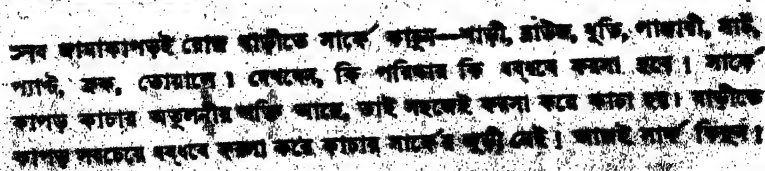 সব জামাকাপড়ই রোজ বাড়ীতে সার্ফে কাচুন—শাড়ী, ব্লাউজ, ধুতি, পাঞ্জাবী, সার্ট,
প্যান্ট, ফ্রক, তোয়ালে। দেখবেন, কি পরিষ্কার কি ধব্‌ধবে ফরসা হবে। সার্ফে
কাপড় কাচার অতুলনীয় শক্তি আছে, তাই সহজেই ফরসা করে কাচা হয়। বাড়ীতে
কাপড় সবচেয়ে ধব্‌ধবে ফরসা করে কাচার সার্ফের জুড়ী নেই। আজই সার্ফ কিনুন।